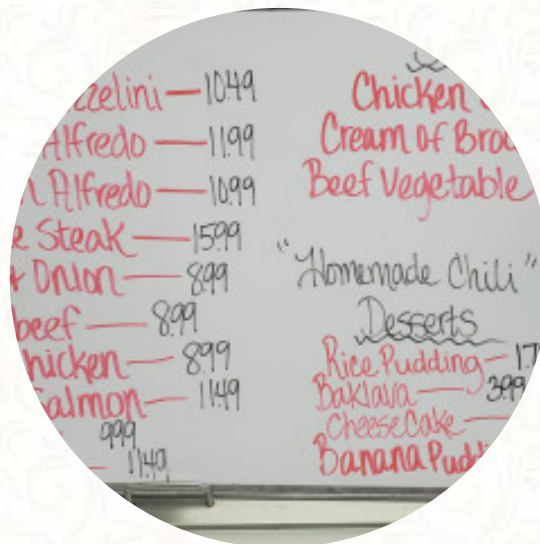 Alfredo — 11.99
Alfredo — 10.99
Steak — 15.99
Onion — 8.99
beef — 8.99
— 8.99
— 11.49
9.99
— 11.49
10.49
Chicken
Cream of
Beef Vegetable
"Homemade Chili"
Desserts
Rice Pudding —
Baklava — 3.99
CheeseCake —
Banana